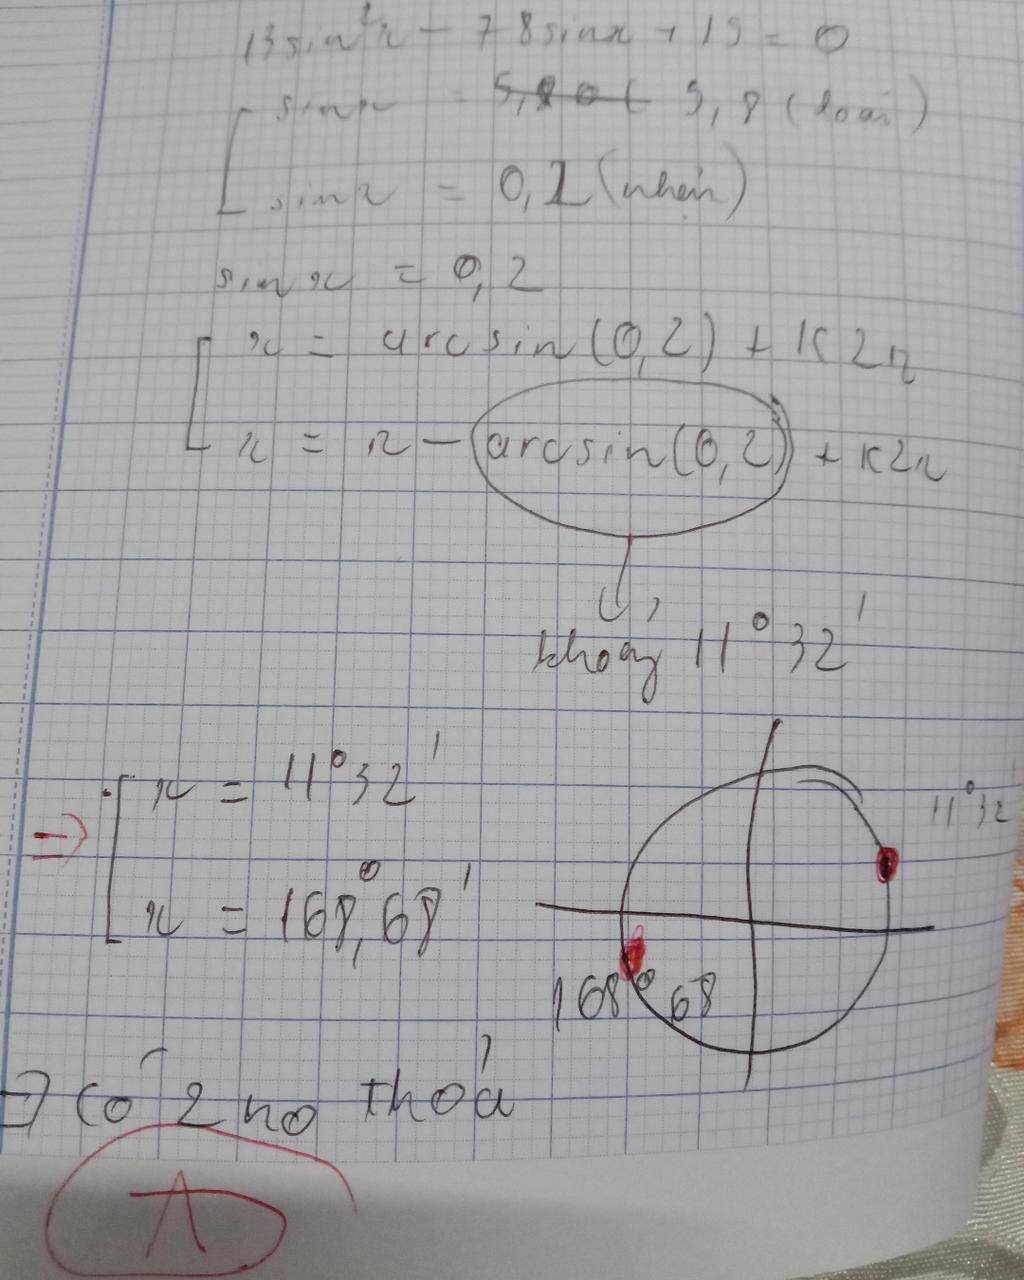 13sin²x - 78sinx + 15 = 0
sinx = 5,8 (loại)
sinx = 0,2 (nhận)
sinx = 0,2
x = arcsin(0,2) + K2π
x = π - arcsin(0,2) + K2π
khoảng 11°32'
=> x = 11°32'
11°32
x = 168°,68'
168°68
=> Có 2 no thoả
A